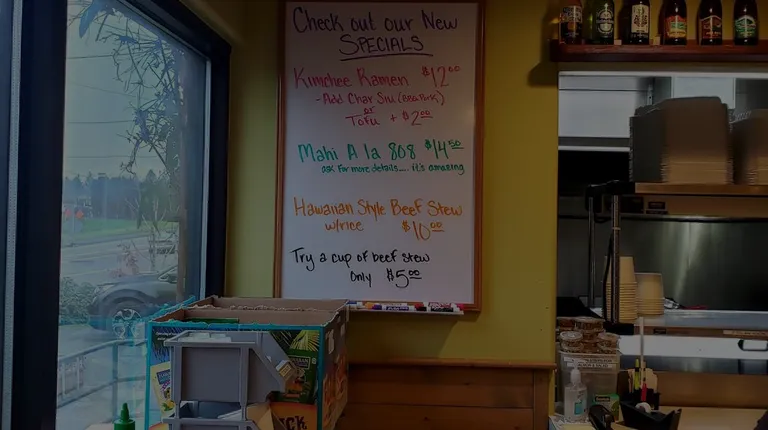 Check out our New
SPECIALS
Kimchee Ramen $12.00
- Add Char Siu (BBQ Pork)
or
Tofu + $2.00
Mahi A la 808 $14.50
ask for more details.... it's amazing
Hawaiian Style Beef Stew
w/rice $10.00
Try a cup of beef stew
only $5.00